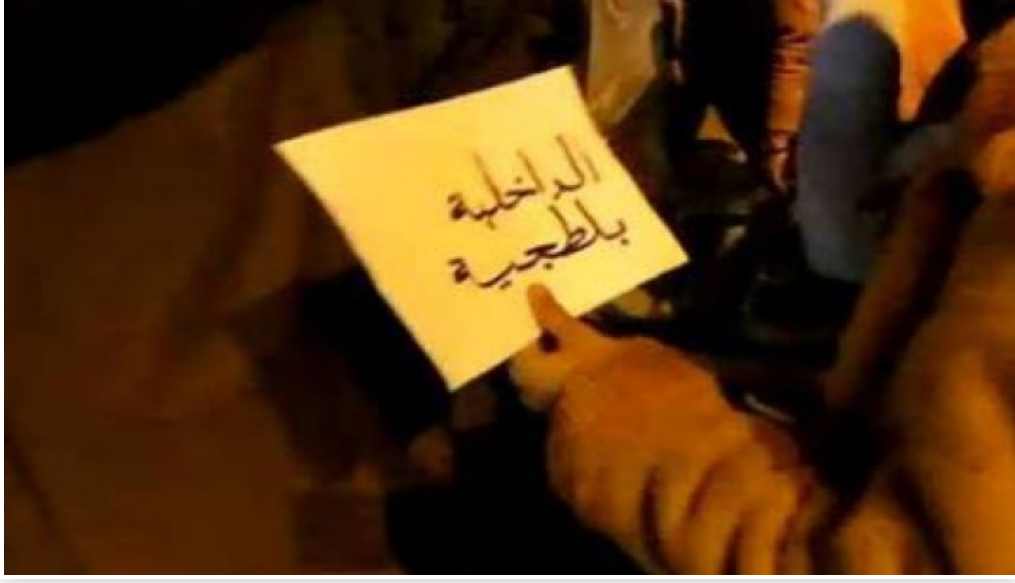 الداخلية
بلطجية